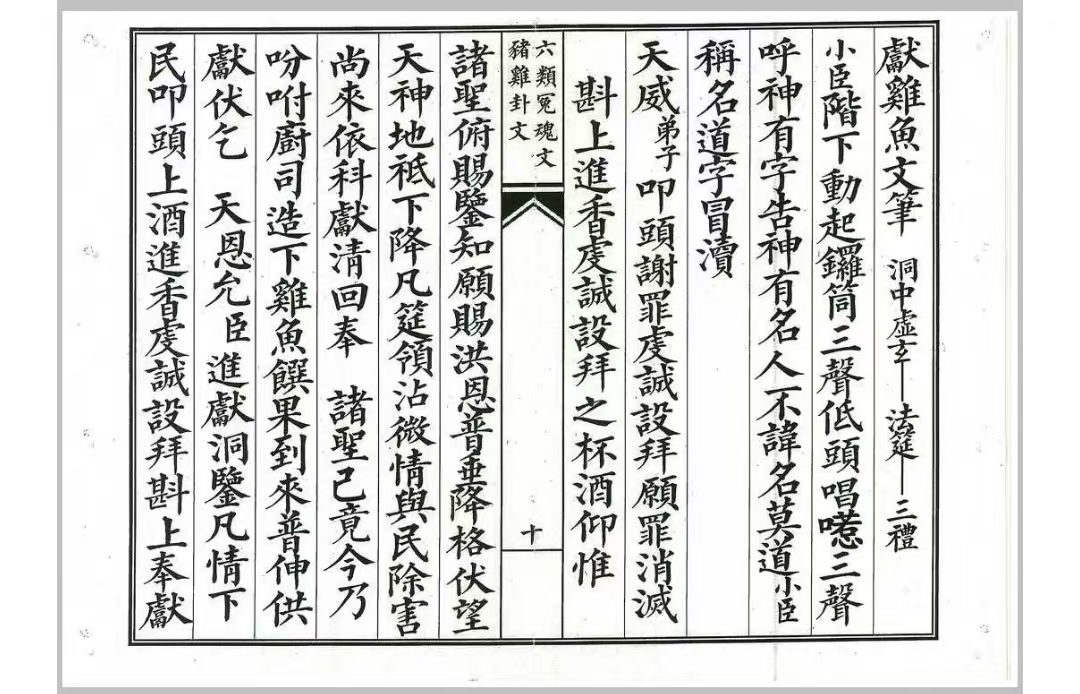 獻雞魚文筆 洞中虛玄——法筵——三禮
小臣階下動起鑼筒三聲低頭唱喏三聲
呼神有字告神有名人不諱名莫道小臣
稱名道字冒瀆
天威弟子叩頭謝罪虔誠設拜願罪消滅
斟上進香虔誠設拜之杯酒仰惟
六類冤魂文
豬雞卦文
十
諸聖俯賜鑒知願賜洪恩普垂降格伏望
天神地祇下降凡筵領沾微情與民除害
尚來依科獻清回奉 諸聖已竟今乃
吩咐廚司造下雞魚饌果到來普伸供
獻伏乞 天恩允臣進獻洞鑒凡情下
民叩頭上酒進香虔誠設拜斟上奉獻